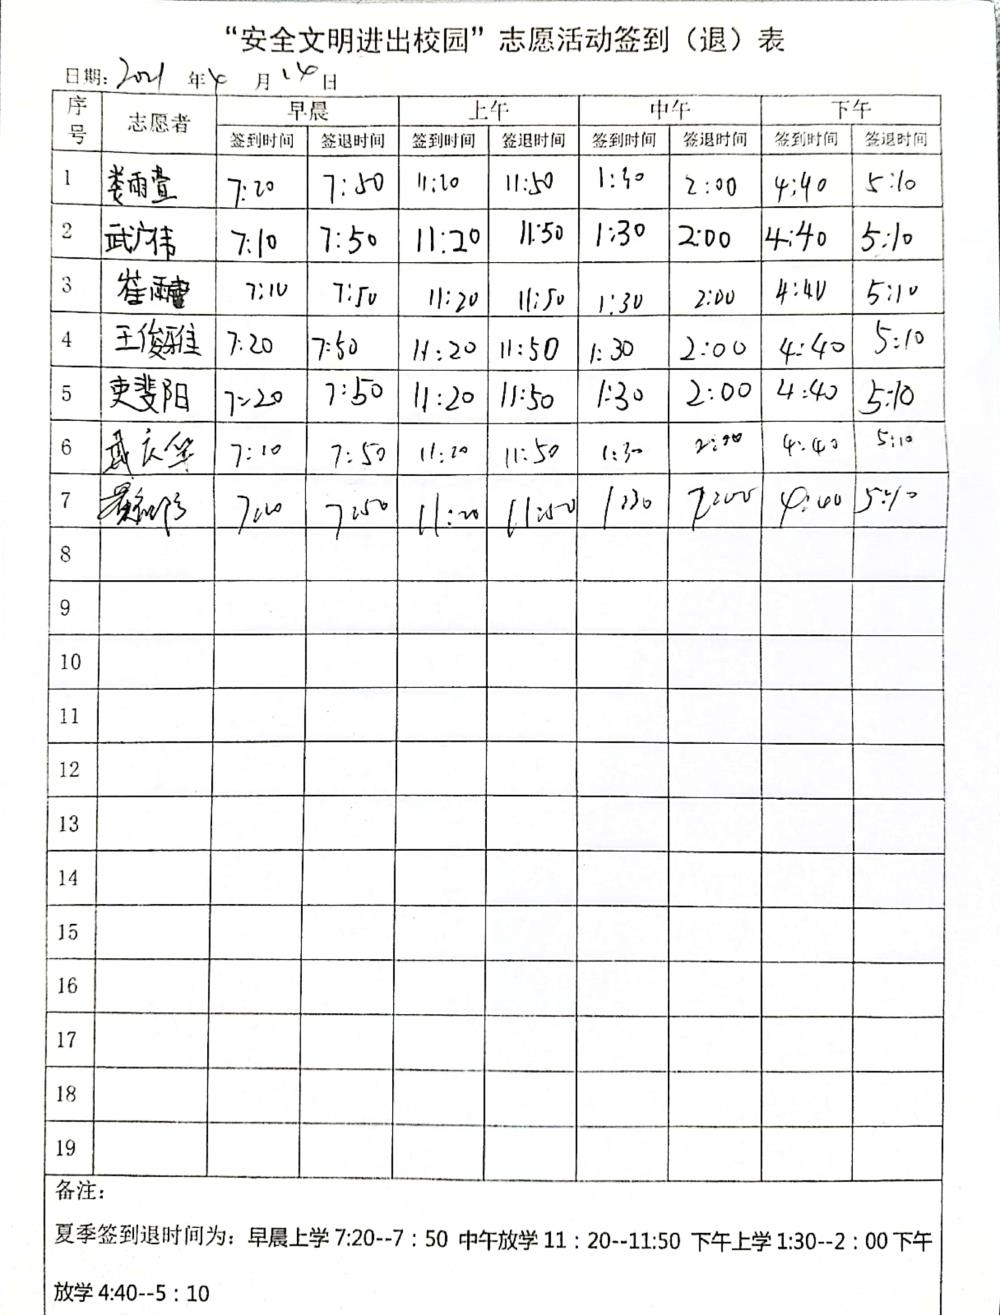 “安全文明进出校园”志愿活动签到（退）表
日期: 2021 年 4 月 14 日
序号 志愿者 早晨 上午 中午 下午
签到时间 签退时间 签到时间 签退时间 签到时间 签退时间 签到时间 签退时间
1 娄雨萱 7:20 7:50 11:20 11:50 1:30 2:00 4:40 5:10
2 武广伟 7:10 7:50 11:20 11:50 1:30 2:00 4:40 5:10
3 崔雨 7:10 7:50 11:20 11:50 1:30 2:00 4:40 5:10
4 王俊雅 7:20 7:50 11:20 11:50 1:30 2:00 4:40 5:10
5 吏斐阳 7:20 7:50 11:20 11:50 1:30 2:00 4:40 5:10
6 武庆华 7:10 7:50 11:20 11:50 1:30 2:00 4:40 5:10
7 7:20 7:50 11:20 11:50 1:30 2:00 4:40 5:10
8
9
10
11
12
13
14
15
16
17
18
19
备注:
夏季签到退时间为: 早晨上学 7:20--7：50 中午放学 11：20--11:50 下午上学 1:30--2：00 下午
放学 4:40--5：10